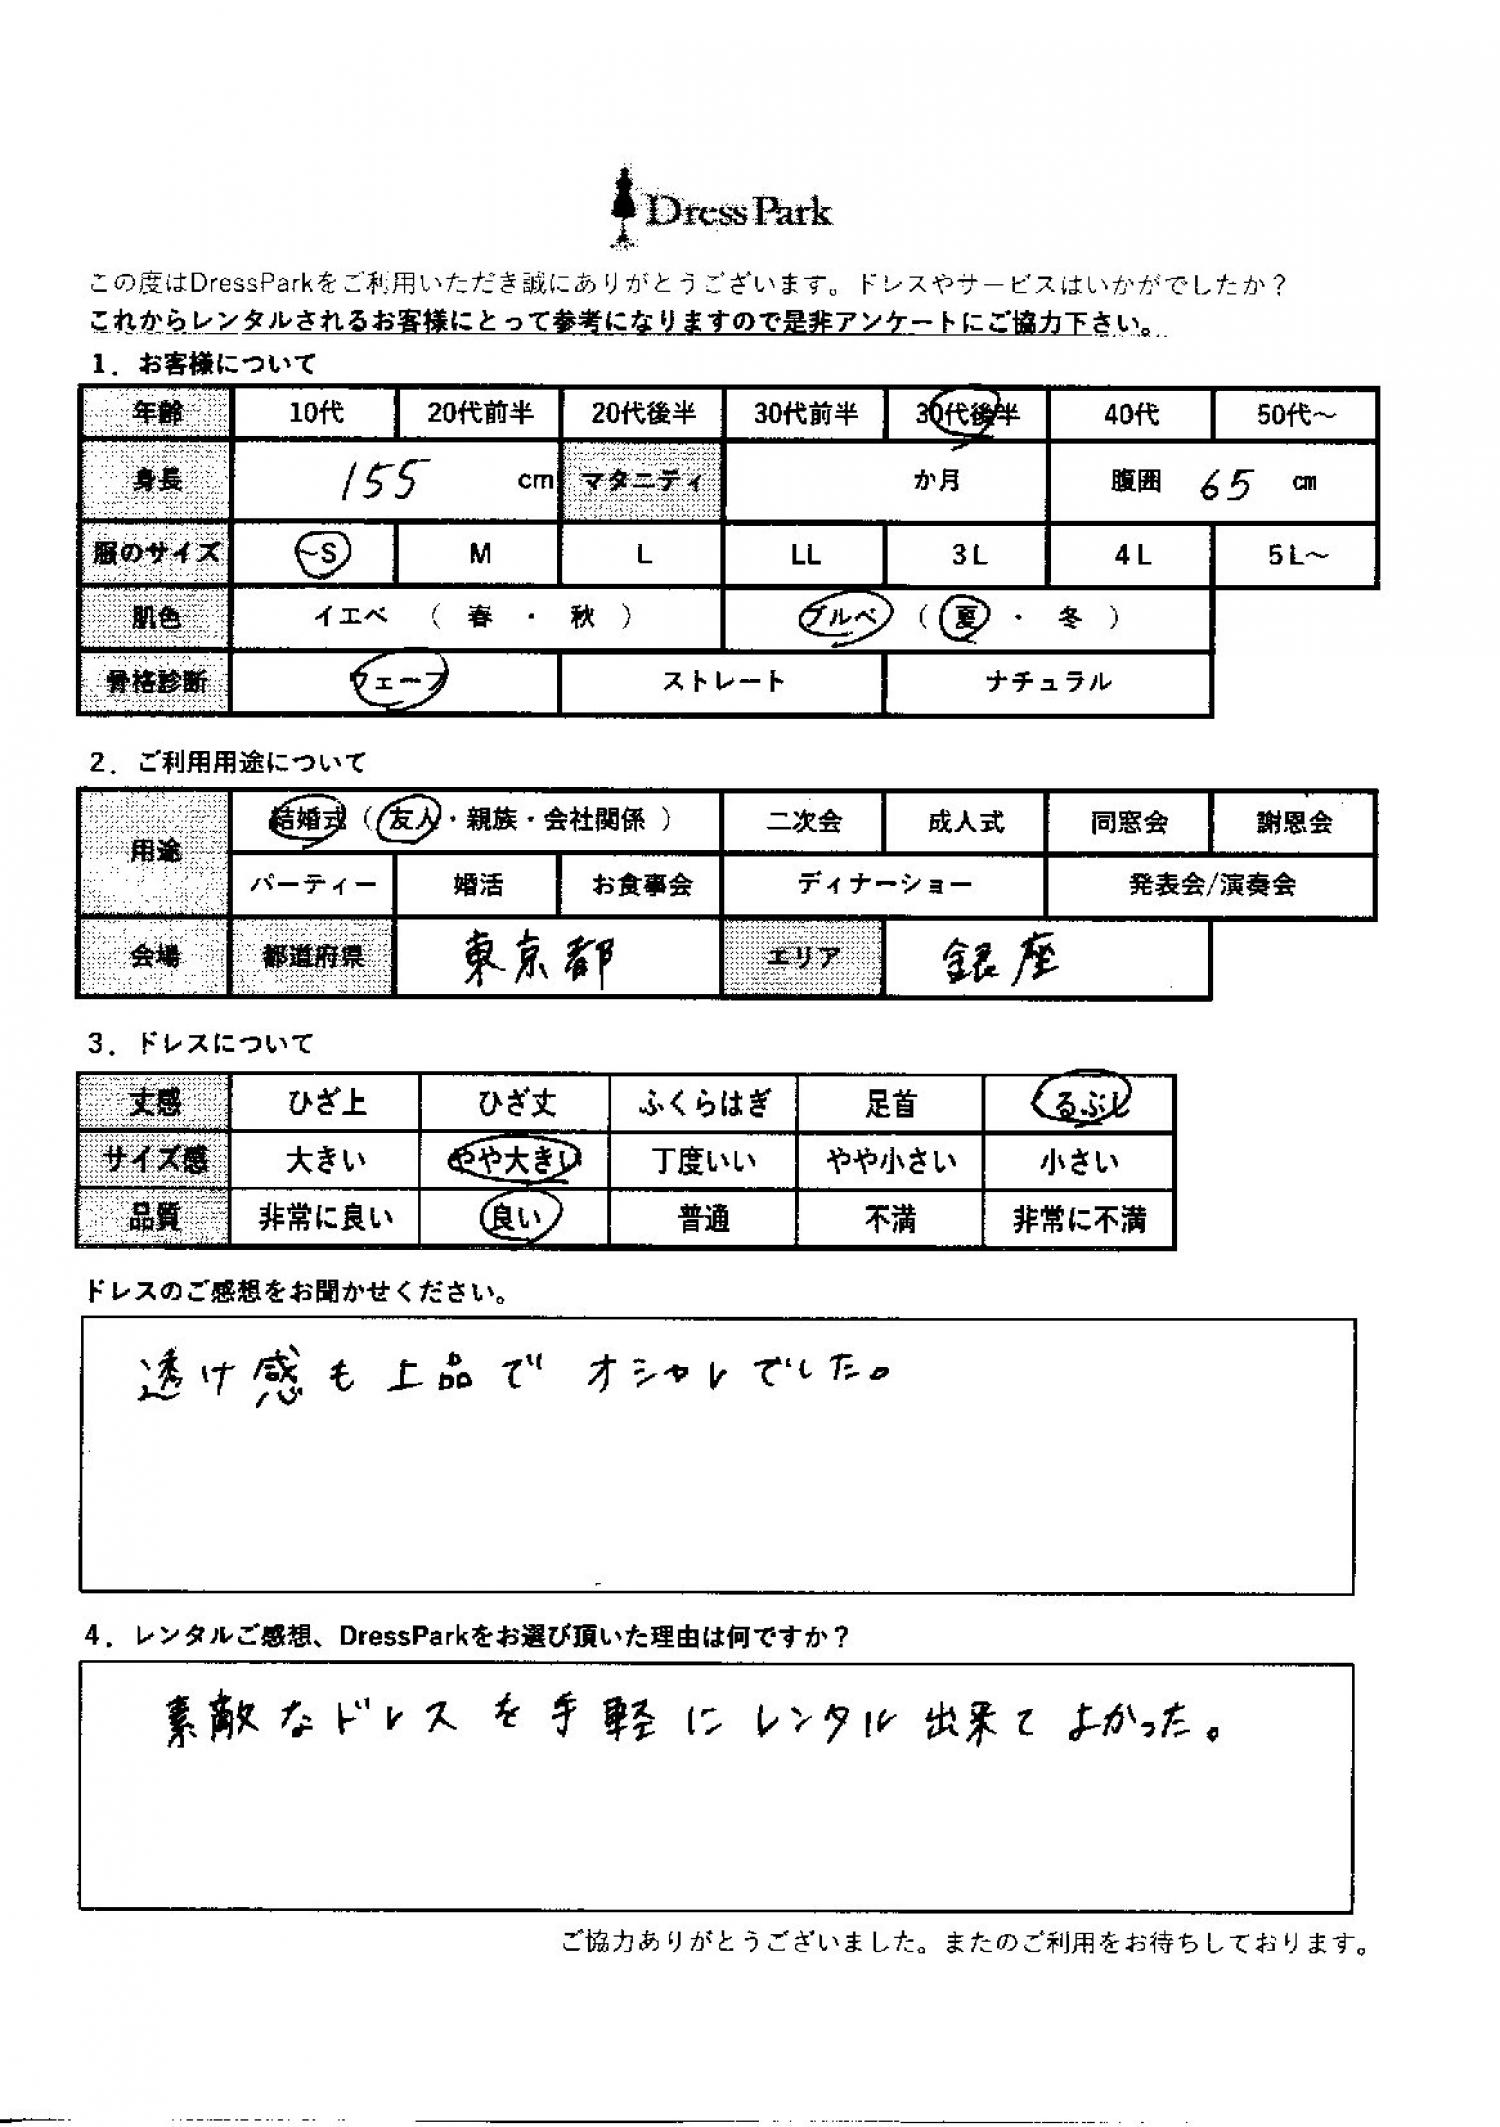 Dress Park
この度はDressParkをご利用いただき誠にありがとうございます。ドレスやサービスはいかがでしたか？
これからレンタルされるお客様にとって参考になりますので是非アンケートにご協力下さい。
1．お客様について
年齢 10代 20代前半 20代後半 30代前半 30代後半 40代 50代～
身長 155 cm マタニティ か月 腹囲 65 cm
服のサイズ ～S M L LL 3L 4L 5L～
肌色 イエベ （ 春 ・ 秋 ） ブルベ （ 夏 ・ 冬 ）
骨格診断 ウェーブ ストレート ナチュラル
2．ご利用用途について
用途 結婚式（ 友人・親族・会社関係 ） 二次会 成人式 同窓会 謝恩会
パーティー 婚活 お食事会 ディナーショー 発表会/演奏会
会場 都道府県 東京都 エリア 銀座
3．ドレスについて
丈感 ひざ上 ひざ丈 ふくらはぎ 足首 くるぶし
サイズ感 大きい やや大きい 丁度いい やや小さい 小さい
品質 非常に良い 良い 普通 不満 非常に不満
ドレスのご感想をお聞かせください。
透け感も上品で オシャレでした。
4．レンタルご感想、DressParkをお選び頂いた理由は何ですか？
素敵なドレスを手軽にレンタル出来てよかった。
ご協力ありがとうございました。またのご利用をお待ちしております。